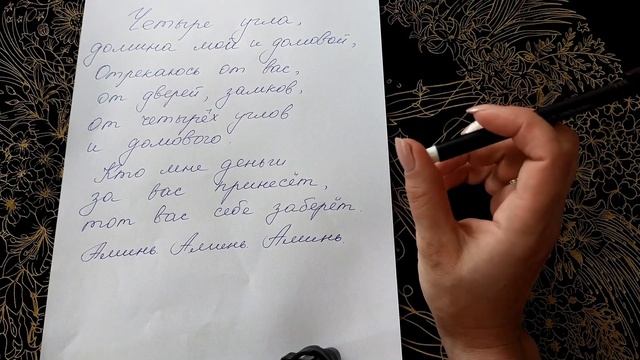 Четыре угла,
домина мой и домовой,
Отрекаюсь от вас,
от дверей, замков,
от четырёх углов
и домового.
Кто мне деньги
за вас принесёт,
тот вас себе заберёт.
Аминь. Аминь. Аминь.